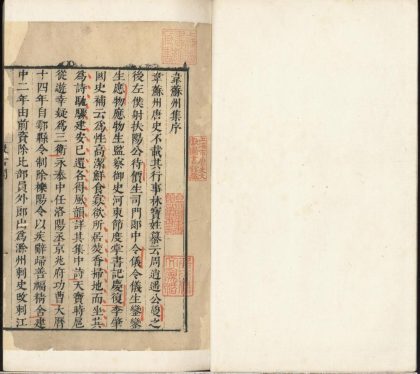 韋蘇州集序
韋蘇州唐史不載其行事林寶姓纂云周逍遙公敻之
後左僕射扶陽公待價生司門郎中令儀令儀生鑾鑾
生應物應物生監察御史河東節度掌書記慶復李肇
國史補云為性高潔鮮食寡欲所居焚香掃地而坐其
為詩馳驟建安已還各得風韻詳其集中詩天寶時扈
從遊幸疑為三衛永泰中任洛陽丞京兆府功曹大曆
十四年自鄠縣令制除櫟陽令以疾辭歸善福精舍建
中二年由前資除比部員外郎出為滁州刺史改刺江